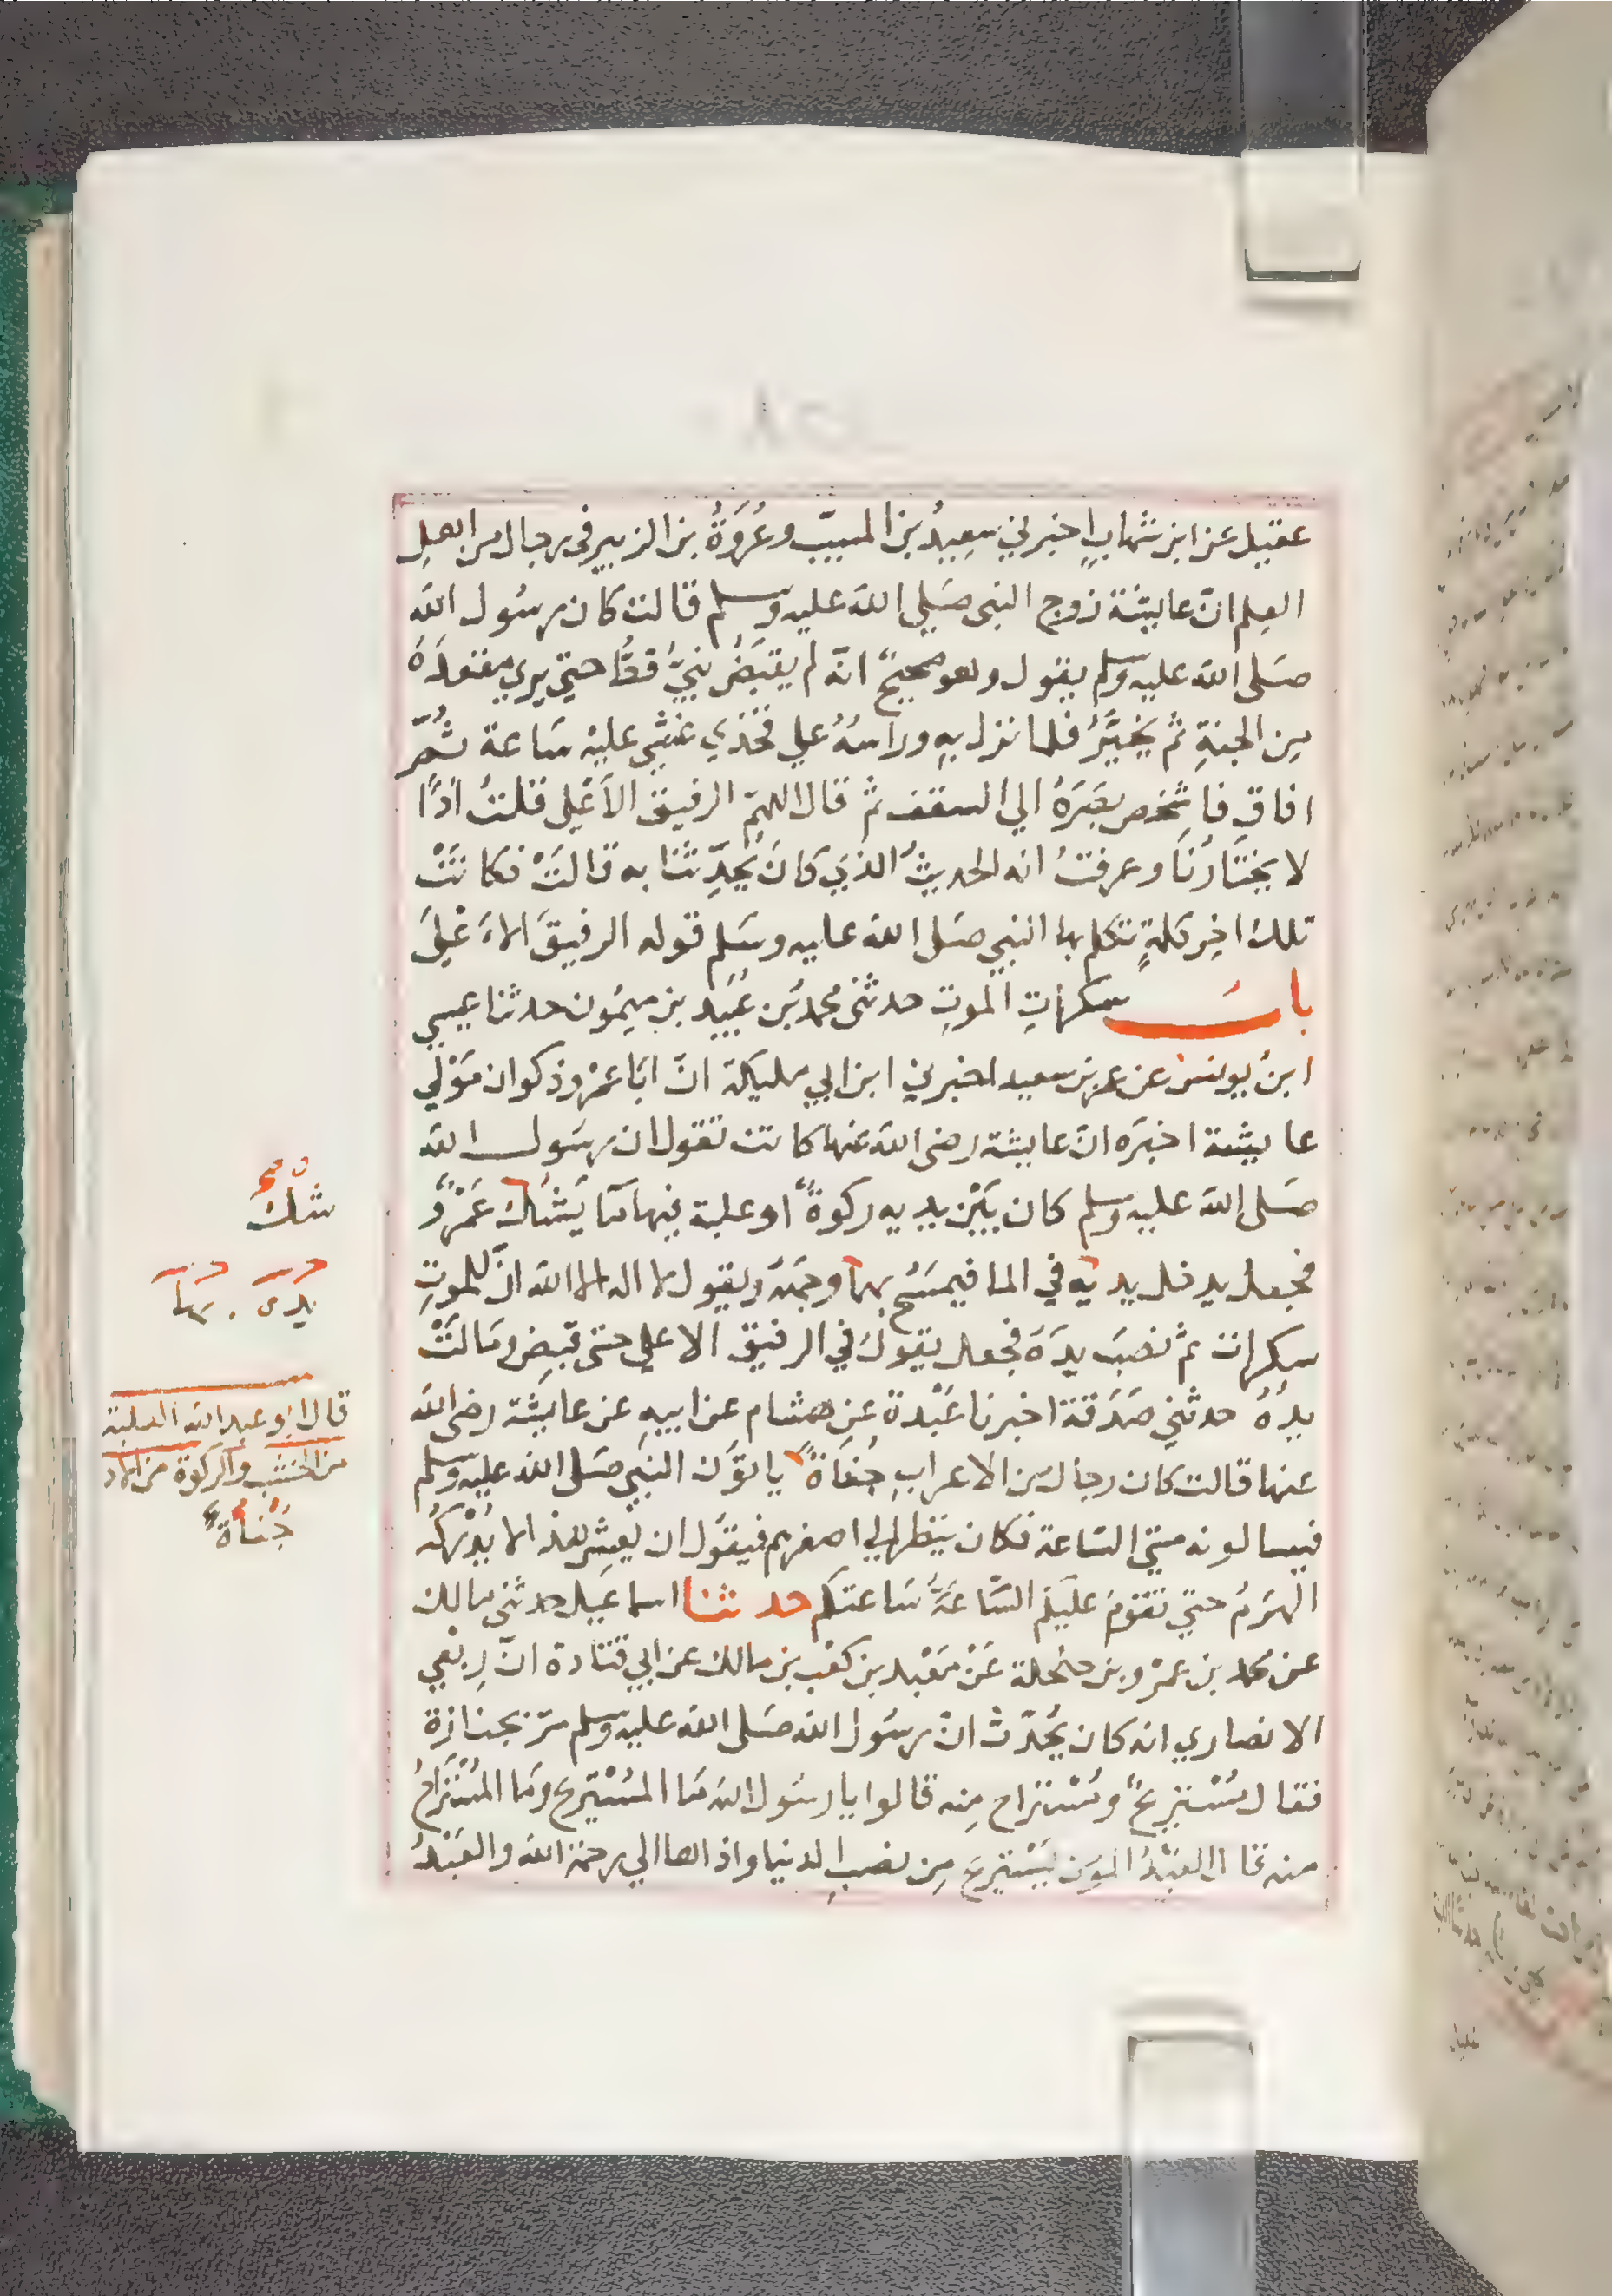 عقيل عن ابن شهابٍ اخبرني سعِيدُ بن المسيبّ وعُروَةُ بن الزبير في رجال من اهلِ
العِلم انّ عايشة زوج النبي صَلى الله عليه وسلم قالت كان رسُول الله
صَلى الله عليه وسلم يقول وهو صحيحٌ انه لم يقبَضْ نبيٌّ قطُّ حتي يري مقعدَهُ
مِن الجنةِ ثم يخيَّرُ فلما نزل بهِ وراسُهُ علي فخذي غشي عليْه سَاعة ثُمّ
افاق فاشخص بصَرَهُ الي السقف ثم قال اللهمّ الرفيق الاَعْلى فقلتُ اذًا
لا يختَارُنَا وعرفتُ انه الحديثُ الذي كانَ يُحدِّثنا به قالَتْ فكانَتْ
تلك اخِر كلمةٍ تكلم بها النبي صَلى الله عليه وسَلم قوله الرفيقَ الاَعْلَي
بابُ سكراتِ الموتِ حدثنى محمد بن عُبَيد بن ميمُون حدثنا عيسي
ابنُ يونس عن عمر بن سعيد اخبرني ابن ابي مليكة انّ ابَا عمْرو ذكوان مَوْلي
عايشة اخبَره انّ عايشة رضى الله عنها كانت تقول ان رسُول الله
صَلى الله عليه وسلم كان بَيْن يديه ركوةٌ او علبة فيها مَا يَشُكُ عَمْرٌو
فجعل يدخل يديه في الما فيمسَحُ بهما وجهَهُ ويقول لا اله الا الله انّ للموتِ
سكراتٍ ثم نصَبَ يدَهُ فجعل يقول في الرفيق الاعلي حتى قبِضَ ومَالَتْ
يدُهُ حدثني صَدَقة اخبرنا عَبْدة عن هشام عن ابيهِ عن عايشة رضى الله
عنها قالت كان رجال من الاعرابِ جُفَاةٌ ياتوُن النبي صَلى الله عليه وسلم
فيسالونه متي السّاعة فكان ينظر الي اصغرهم فيقوُل ان يعِشْ هذا لا يُدْركُه
الهرَمُ حتي تقومَ عليكم السَّاعَةُ سَاعتكم حدثنا اسماعيل حدثنى مالك
عن محمد بن عمْرو بن حلحلة عَنْ مَعْبد بن كعْب بن مالك عن ابي قتادة انّ ربْعي
الانصاري انه كان يُحدّث انّ رسُول الله صَلى الله عليه وسلم مرّ بجنازة
فقال مُسْتريحٌ ومُسْتراح مِنه قالوا يا رسُول الله مَا المسْتريح ومَا المُسْتَراحُ
منه قال العَبْدُ المومن يَسْتريحُ مِن نصَبِ الدنيا واذاها الي رحمَة الله والعَبْدُ
شكَّ
يدَهُ . بها
قال ابو عبد الله العلبة
من الخشب والركوة من الادم
جُفاةٌ